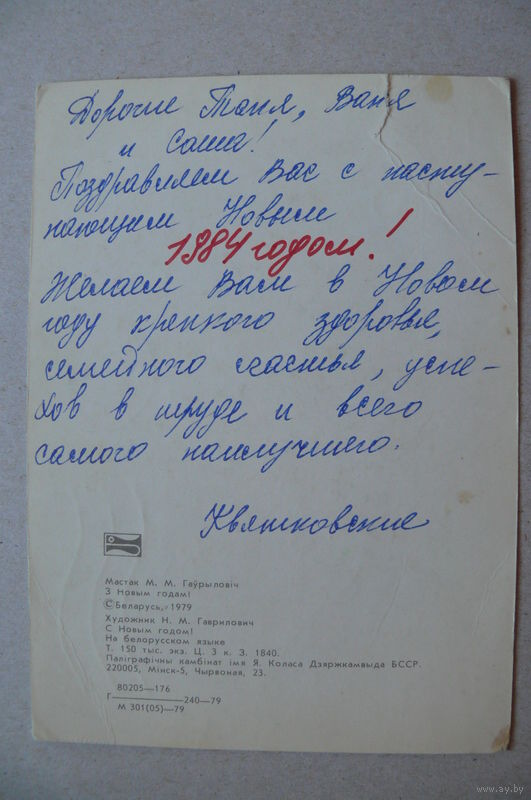 Дорогие Таня, Ваня
и Саша!
Поздравляем Вас с насту-
пающим Новым
1984 годом!
Желаем Вам в Новом
году крепкого здоровья,
семейного счастья, успе-
хов в труде и всего
самого наилучшего.
Квятковские
Мастак М. М. Гаўрыловіч
З Новым годам!
© Беларусь, 1979
Художник Н. М. Гаврилович
С Новым годом!
На белорусском языке
Т. 150 тыс. экз. Ц. 3 к. З. 1840.
Паліграфічны камбінат імя Я. Коласа Дзяржкамвыда БССР.
220005, Мінск-5, Чырвоная, 23.
80205—176
Г 240—79
М 301(05)—79
www.ay.by